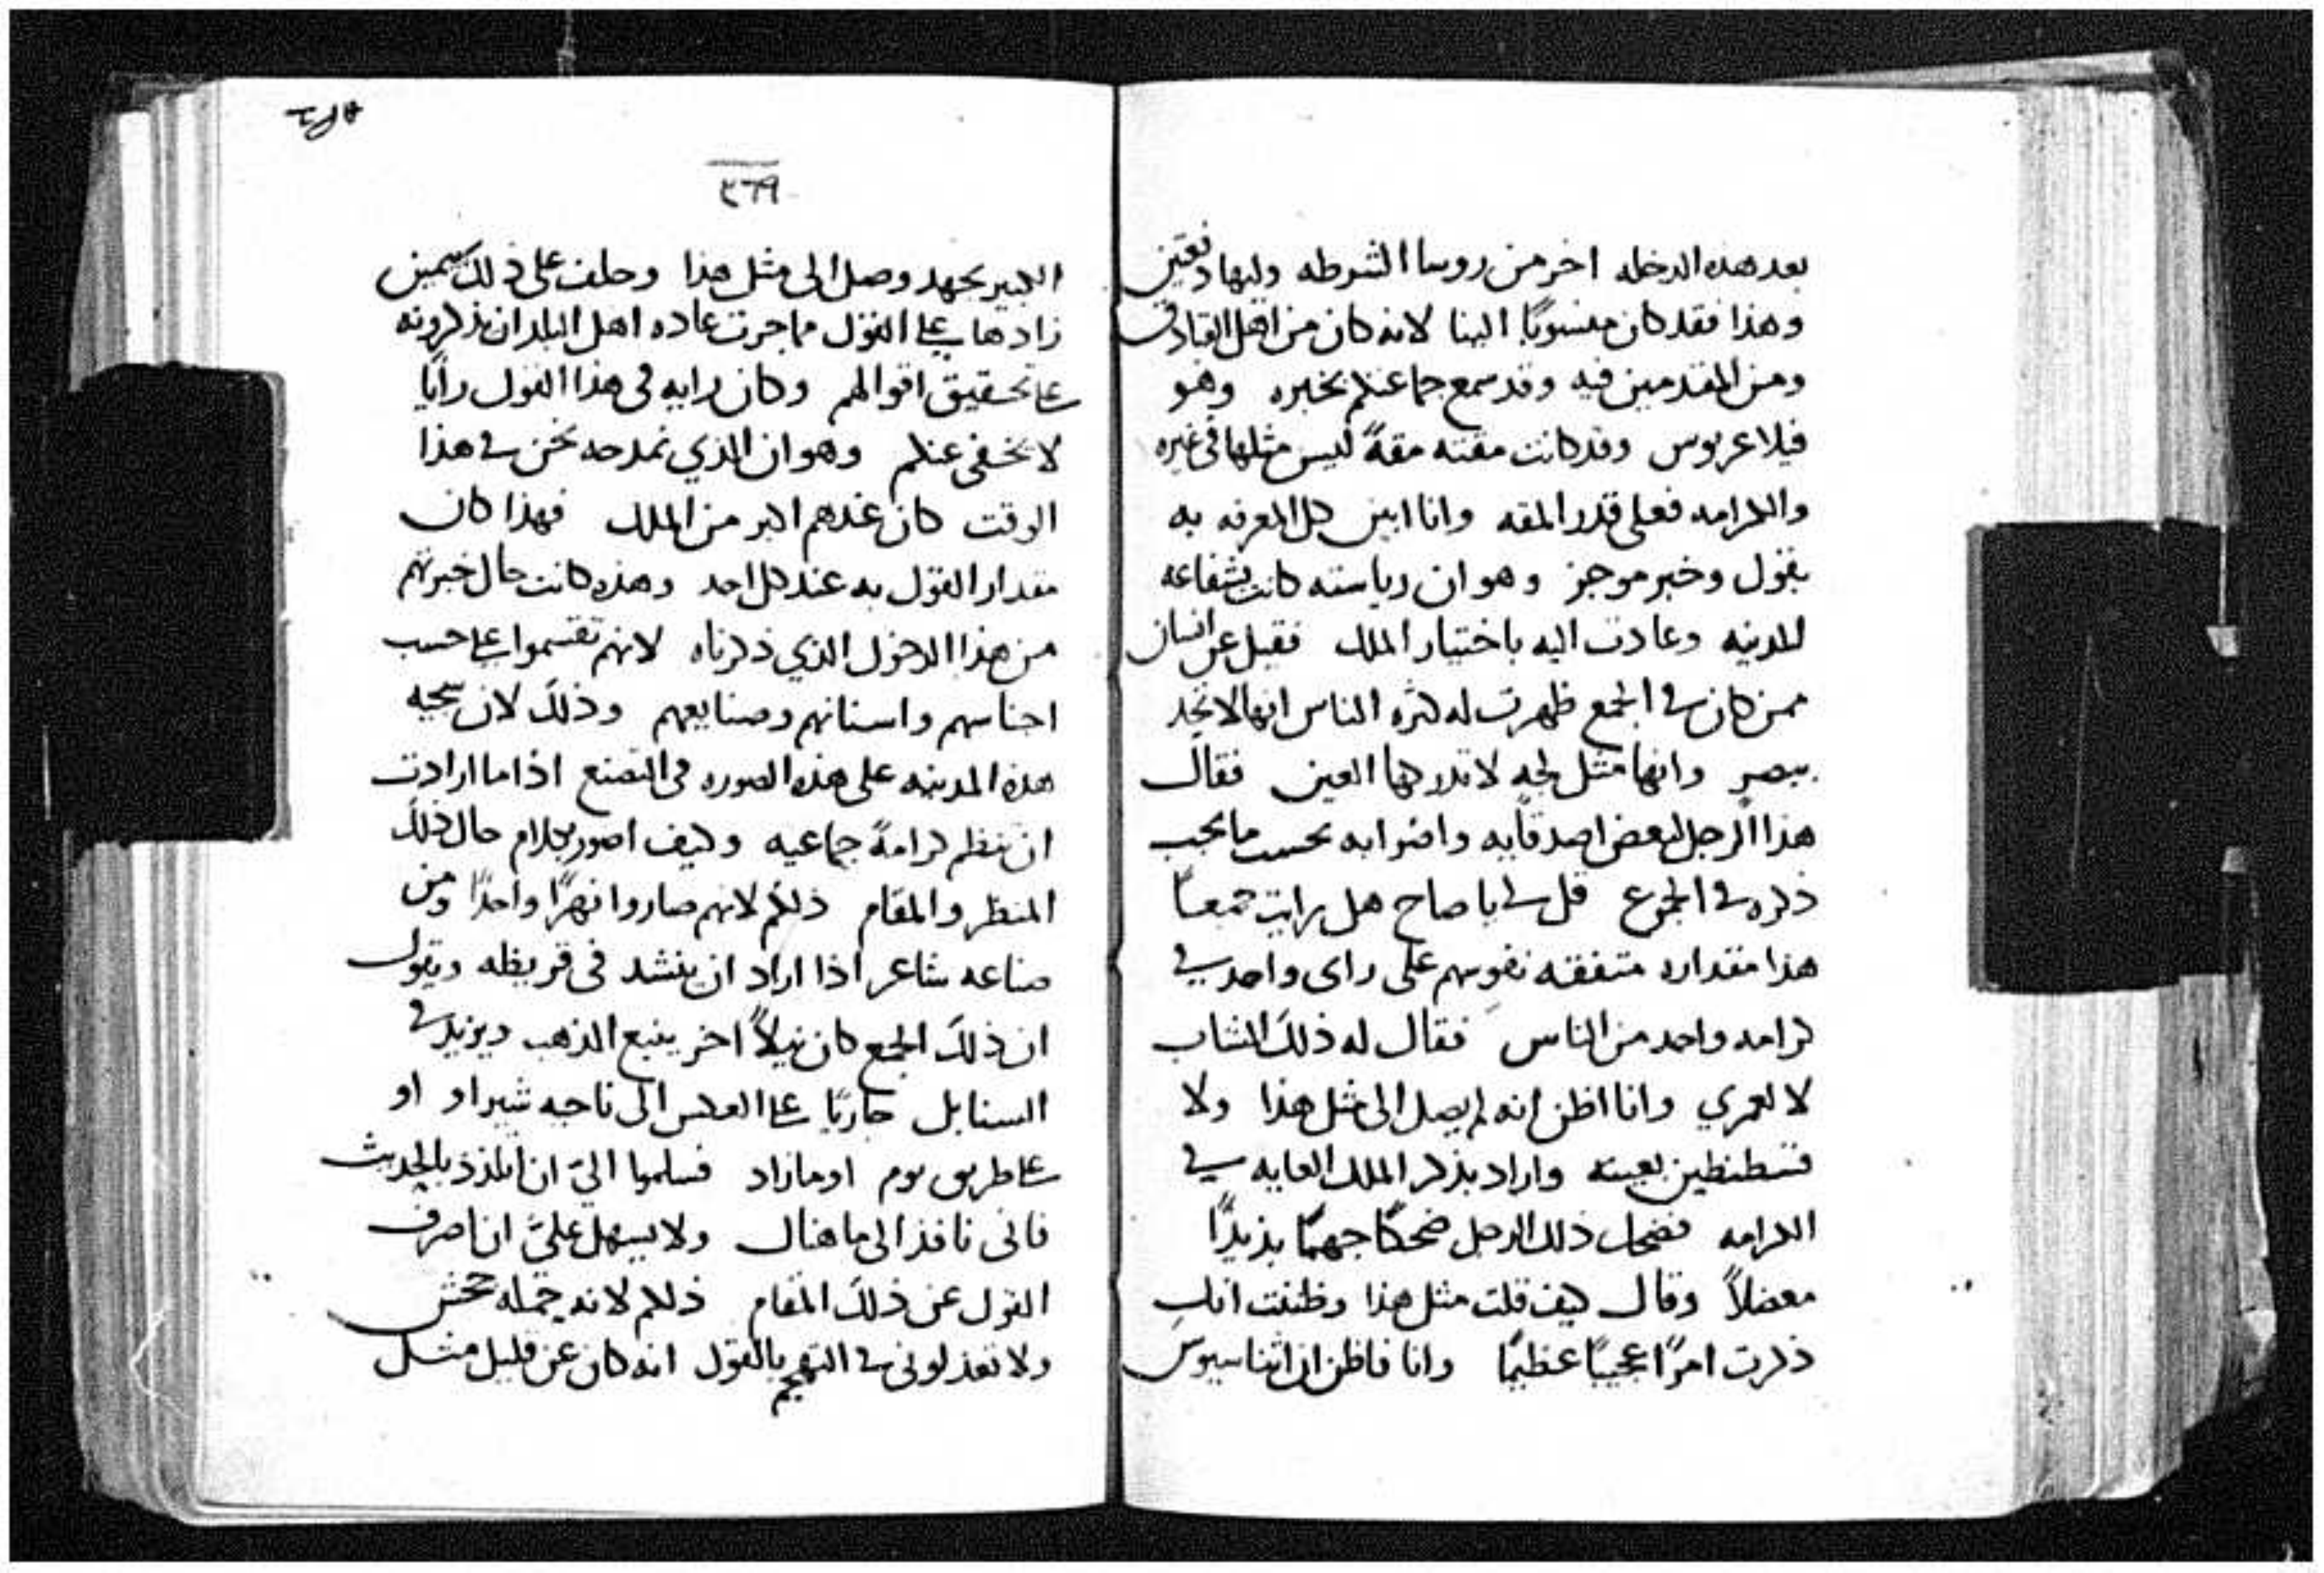 بعد هذه الدخله اخر من روسا الشرطه وليها دفعتين
وهذا فقد كان منسوبًا الينا لانه كان من اهل القبادق
ومن المقدمين فيه وقد سمع جماعتكم بخبره وهو
فيلاعريوس وقد كانت مقته مقةً ليس مثلها في غيره
والكرامه فعلى قدر المقه وانا ابين كل المعرفه به
بقول وخبر موجز وهو ان رياسته كانت بشفاعه
المدينه وعادت اليه باختيار الملك فقيل عن انسان
ممن كان في الجمع ظهرت له كثره الناس انها لا تحد
ببصر وانها مثل لجه لا تدركها العين فقال
هذا الرجل لبعض اصدقايه واضرابه بحسب ما يجب
ذكره في الجموع قل لي يا صاح هل رايت جمعًا
هذا مقداره متفقه نفوسهم على راى واحد في
كرامه واحد من الناس فقال له ذلك الشاب
لا لعمري وانا اظن انه لم يصل الى مثل هذا ولا
قسطنطين بعينه واراد بذكر الملك الغايه في
الكرامه فضحك ذلك الرجل ضحكًا جهمًا
معضلاً وقال كيف قلت مثل هذا وظننت انك
ذكرت امرًا عجيبًا عظيمًا وانا فاظن ان اثناسيوس
٣٦٩
الكبير بجهد وصل الى مثل هذا وحلف على ذلك بيمين
زادها على القول مما جرت عاده اهل البلد ان يذكرونه
على تحقيق اقوالهم وكان رايه في هذا القول رأيًا
لا يخفى عنكم وهو ان الذي نمدحه نحن في هذا
الوقت كان عندهم اكبر من الملك فهذا كان
مقدار القول به عند كل احد وهذه كانت حال خبرتهم
من هذا الدخول الذي ذكرناه لانهم تقسموا على حسب
اجناسهم واسنانهم وصنايعهم وذلك لان سجيه
هذه المدينه على هذه الصوره في التصنع اذا ما ارادت
ان تنظم كرامةً جماعيه وكيف اصور بكلام حال ذلك
المنظر والمقام ذلكم لانهم صاروا نهرًا واحدًا ومن
صناعه شاعر اذا اراد ان ينشد في قريظه ويقول
ان ذلك الجمع كان نيلاً اخر ينبع الذهب ويزيد في
السنابل جاريًا على العكس الى ناحيه شيراو او
على طريق يوم او ما زاد فسلموا اليّ ان اتلذذ بالحديث
فانى نافذ الى ما هناك ولا يسهل عليّ ان اصرف
القول عن ذلك المقام ذلكم لانه حمله جحش
ولا تعذلوني في التهجم بالقول انه كان عن قليل مثل